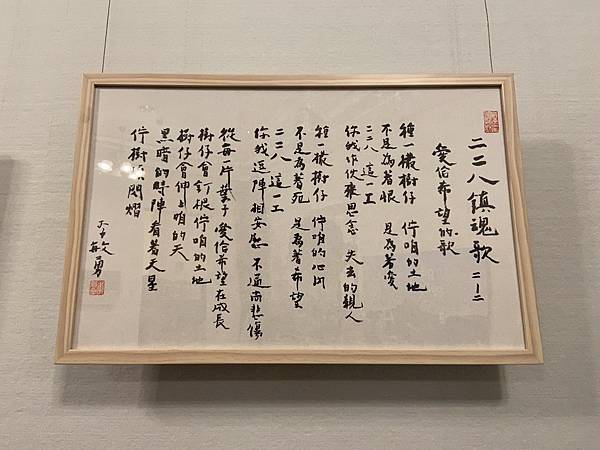 二二八鎮魂歌 二-二
愛佮希望的歌
種一欉樹仔 佇咱的土地
不是為著恨 是為著愛
二二八 這一工
你我作伙來思念 失去的親人
種一欉樹仔 佇咱的心內
不是為著死 是為著希望
二二八 這一工
你我逗陣相安慰 不通尚悲傷
從每一片葉子 愛佮希望在成長
樹仔會釘根佇咱的土地
樹仔會伸上咱的天
黑暗的時陣看著天星
佇樹 閃熠
敏勇